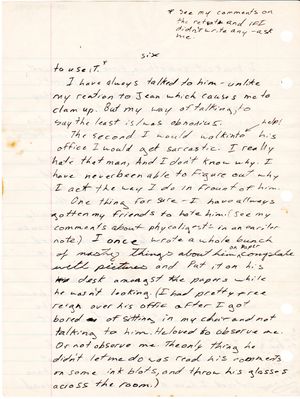 * See my comments on
the retest and if I
didn't write any - ask
me.
six
to use it.*
I have always talked to him - unlike
my reation to Jean which causes me to
clam up. But my way of talking, to
say the least is/was obnoxius.
help!
The second I would walk into his
office I would get sarcastic. I really
hate that man, and I don't know why. I
have never been able to figure out why
I act the way I do in frount of him.
One thing for sure - I have allways
gotten my friends to hate him (see my
comments about phycoligests in an earlier
note) I once wrote a whole bunch
of nastey things about him, on paper complete
well pictures and put it on his
desk amongst the papers while
he wasn't looking. (I had pretty free
reign over his office after I got
bored of sitting in my chair and not
talking to him. He loved to observe me.
Or not observe me. The only thing he
didn't let me do was read his comments
on some ink blots, and throw his glasses
across the room.)